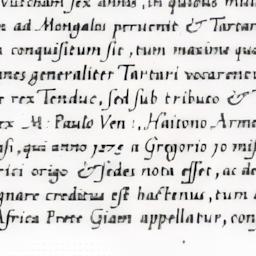 Vutcham sex annis, in quibus mul
n ad Mongalos peruenit & Tartar
n conquisitum sit, tum maxime qua
nes generaliter Tartari vocarent
t rex Tenduc, sed sub tributo & T
ex M: Paulo Ven:, Haitono Arme
si, qui anno 1275 a Gregorio 10 miss
rici origo & sedes nota esset, ac de
gnare creditus est hactenus, tum a
Africa Prete Giam appellatur, con